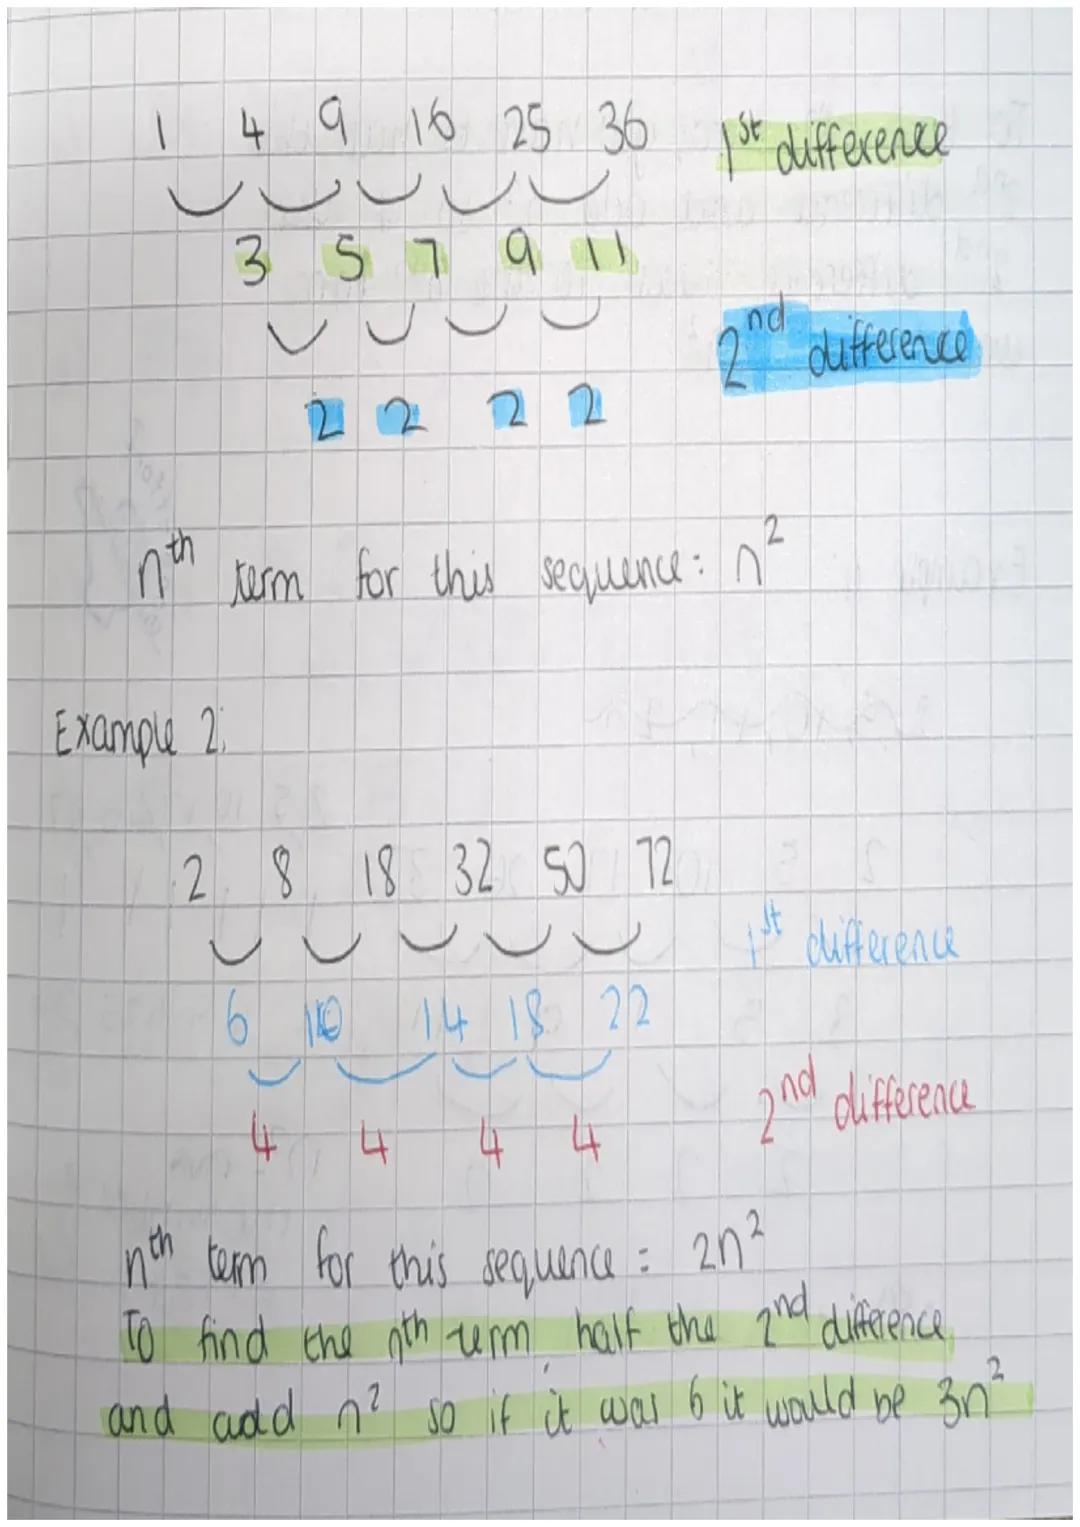 1 4 9 16 25 36 1st difference
3 5 7 9 11
2nd difference
2 2 2 2
nth term for this sequence: n²
Example 2:
2 8 18 32 50 72
1st difference
6 10 14 18 22
2nd difference
4 4 4 4
nth term for this sequence = 2n²
To find the nth term, half the 2nd difference
and add n² so if it was 6 it would be 3n²